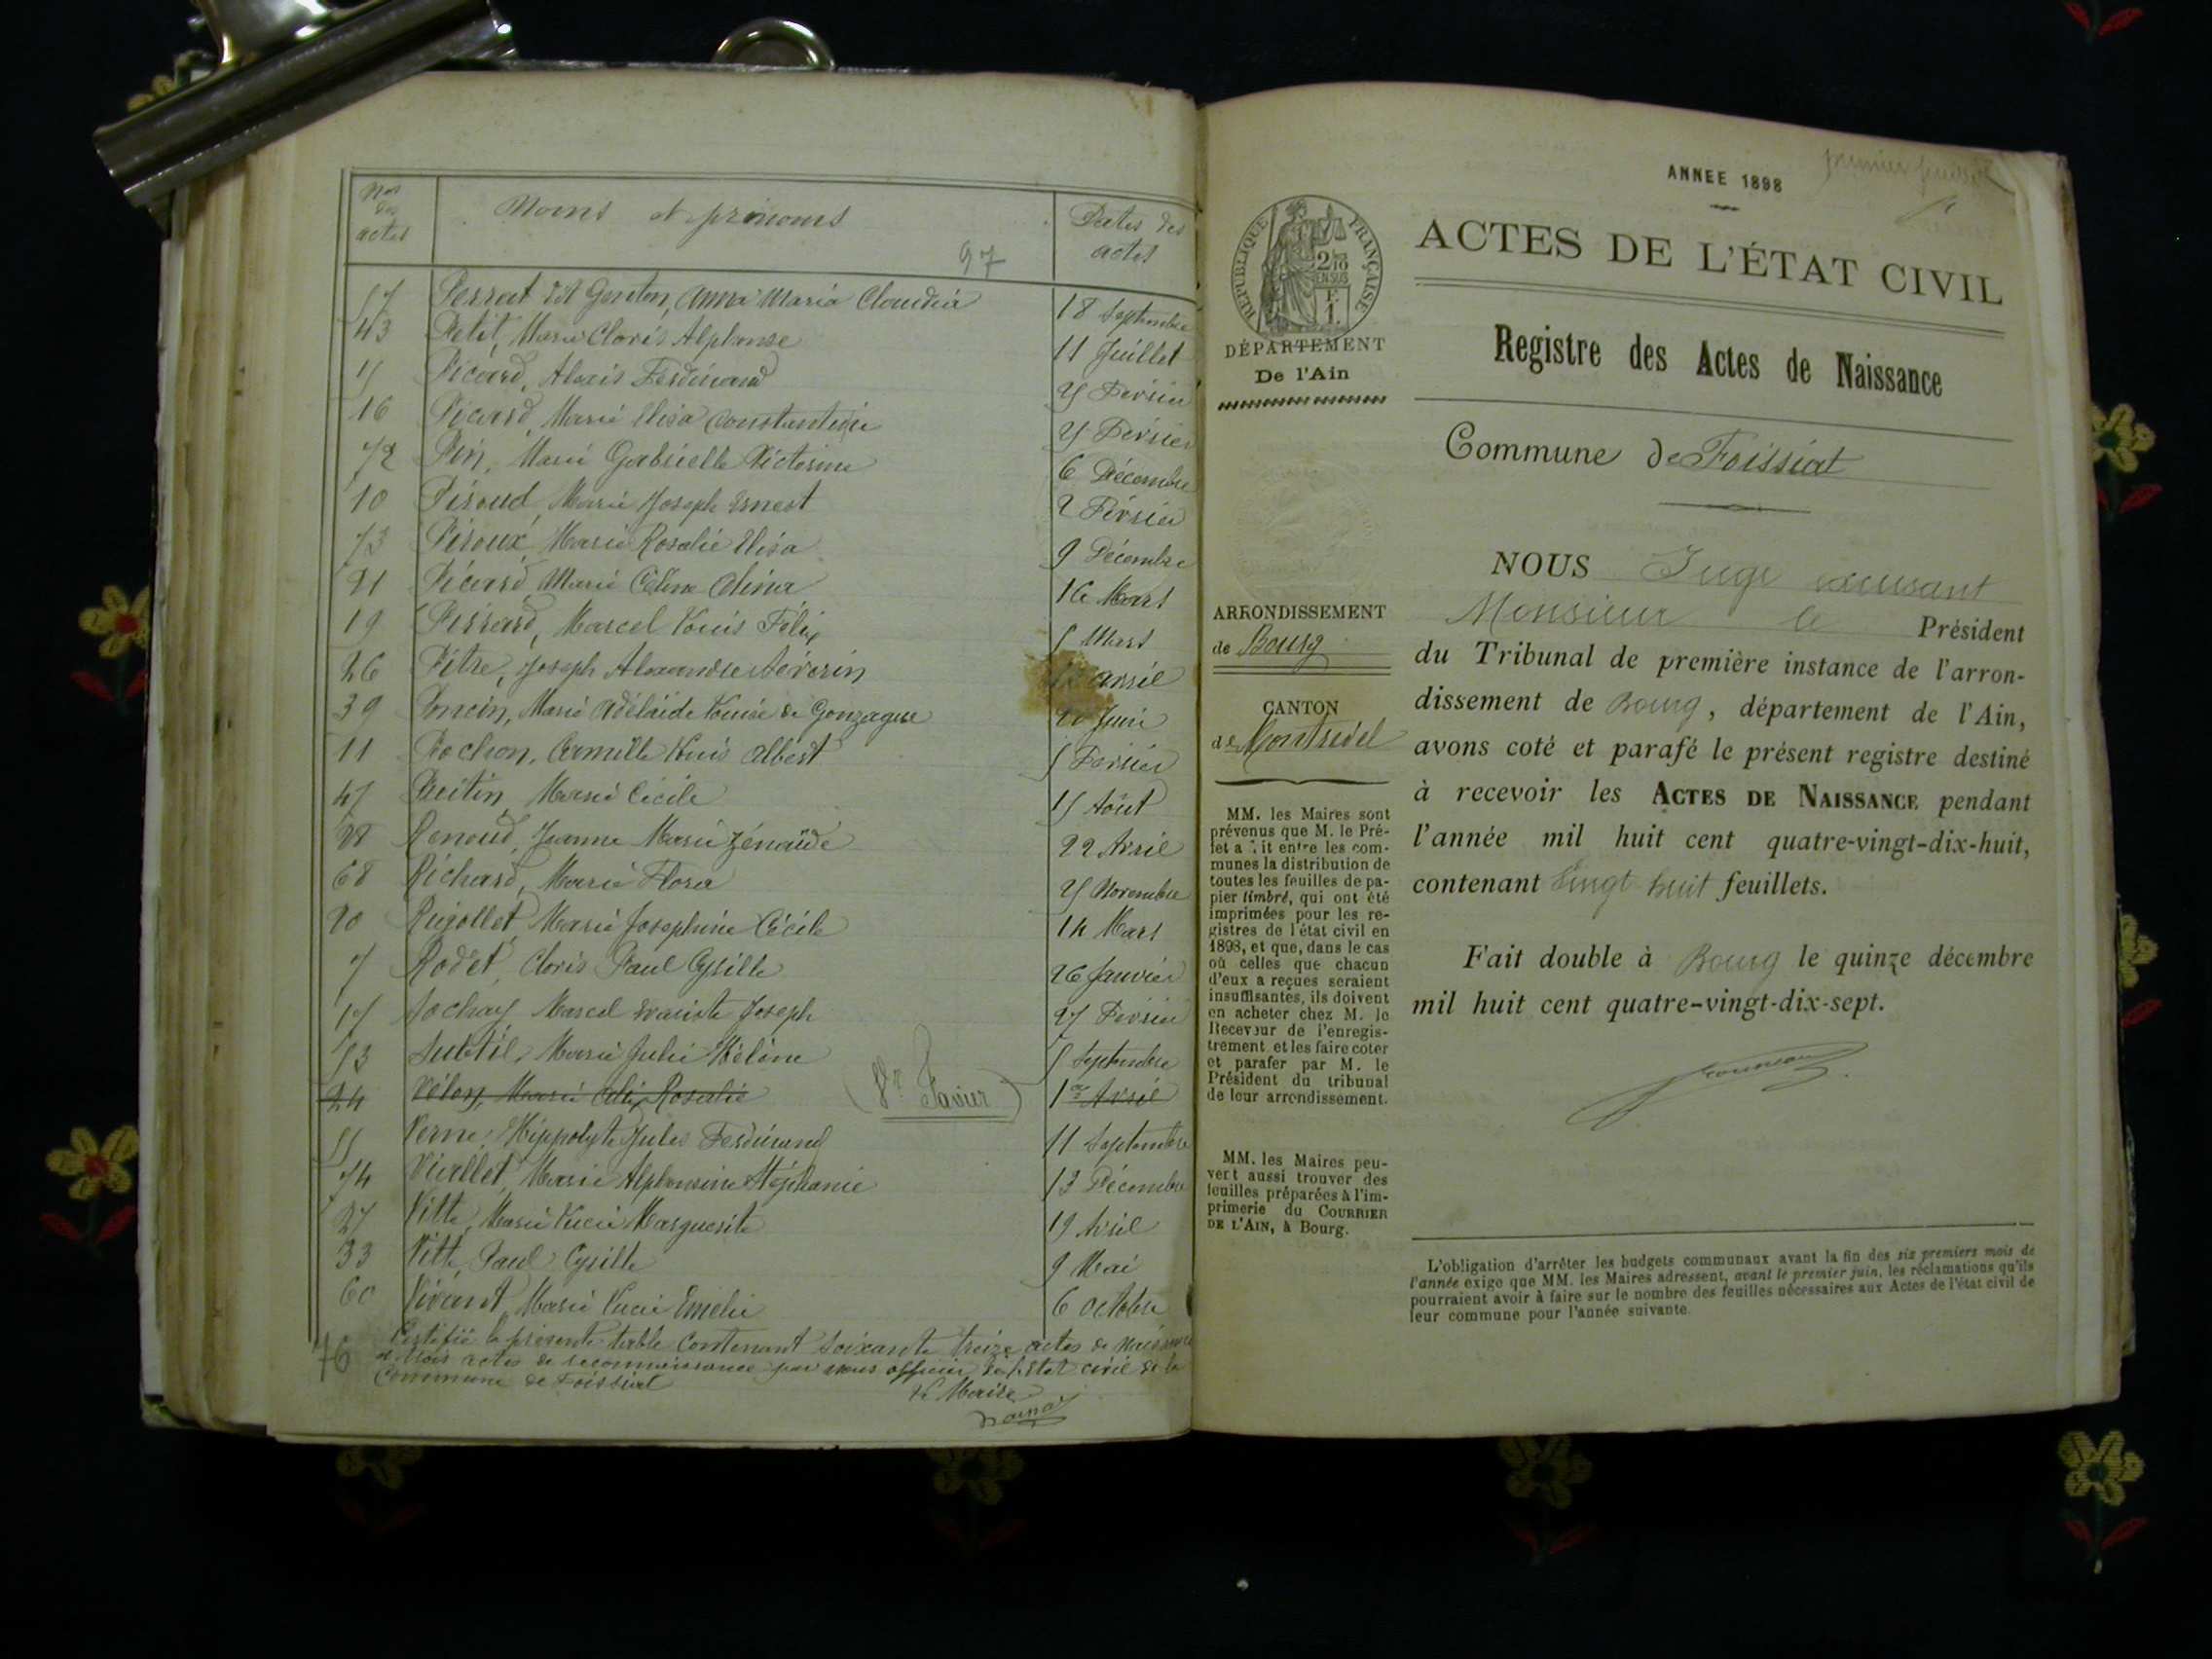 Nos des actes
Noms et prénoms
97
Dates des actes
57 Perrat dit Genton, Anna Maria Claudia 18 Septembre
43 Petit, Marie Clovis Alphonse 11 Juillet
15 Picard, Alexis Ferdinand 25 Février
16 Picard, Marie Elisa Constantine 25 Février
72 Pin, Marie Gabrielle Victorine 6 Décembre
10 Piroud, Marie Joseph Ernest 2 Février
73 Piroux, Marie Rosalie Elisa 9 Décembre
21 Picard, Marie Célina 16 Mars
19 Marcel Louis Félix 5 Mars
26 Pitre, Joseph Alexandre Séverin avril
39 Poncin, Marie Adélaïde Louise de Gonzague Juin
11 Rochon, Camille Louis Albert 5 Février
47 Marie Cécile 15 Août
28 Renoud, Jeanne Marie Zénaïde 22 Avril
68 Richard, Marie Flora 25 Novembre
20 Rigollet, Marie Joséphine Cécile 14 Mars
7 Rodet, Clovis Paul Cyrille 26 Janvier
17 Sochay, Marcel Evariste Joseph 27 Février
53 Subtil, Marie Julie Hélène 5 Septembre
24 Vélon, Marie Alix Rosalie (Vr Favier) 1er Avril
55 Verne, Hippolyte Jules Ferdinand 11 Septembre
74 Viallet, Marie Alphonsine Stéphanie 13 Décembre
27 Vitte, Marie Lucie Marguerite 19 Avril
33 Vitte, Paul Cyrille 9 Mai
60 Vivant, Marie Lucie Emélie 6 octobre
76 Certifié la présente table contenant soixante treize actes de naissance
et trois actes de reconnaissance par nous officier de l'Etat civil de la
Commune de Foissiat
Le Maire
premier feuillet
ANNEE 1898
ACTES DE L'ÉTAT CIVIL
Registre des Actes de Naissance
Commune de Foissiat
RÉPUBLIQUE FRANÇAISE
2/10
EN SUS
F.
1.
DÉPARTEMENT
De l'Ain
ARRONDISSEMENT
de Bourg
CANTON
de Montrevel
MM. les Maires sont
prévenus que M. le Pré-
fet a fait entre les com-
munes la distribution de
toutes les feuilles de pa-
pier timbré, qui ont été
imprimées pour les re-
gistres de l'état civil en
1898, et que, dans le cas
où celles que chacun
d'eux a reçues seraient
insuffisantes, ils doivent
en acheter chez M. le
Receveur de l'enregis-
trement et les faire coter
et parafer par M. le
Président du tribunal
de leur arrondissement.
MM. les Maires peu-
vent aussi trouver des
feuilles préparées à l'im-
primerie du COURRIER
DE L'AIN, à Bourg.
NOUS Juge excusant
Monsieur le Président
du Tribunal de première instance de l'arron-
dissement de Bourg, département de l'Ain,
avons coté et parafé le présent registre destiné
à recevoir les ACTES DE NAISSANCE pendant
l'année mil huit cent quatre-vingt-dix-huit,
contenant vingt huit feuillets.
Fait double à Bourg le quinze décembre
mil huit cent quatre-vingt-dix-sept.
L'obligation d'arrêter les budgets communaux avant la fin des six premiers mois de
l'année exige que MM. les Maires adressent, avant le premier juin, les réclamations qu'ils
pourraient avoir à faire sur le nombre des feuilles nécessaires aux Actes de l'état civil de
leur commune pour l'année suivante.